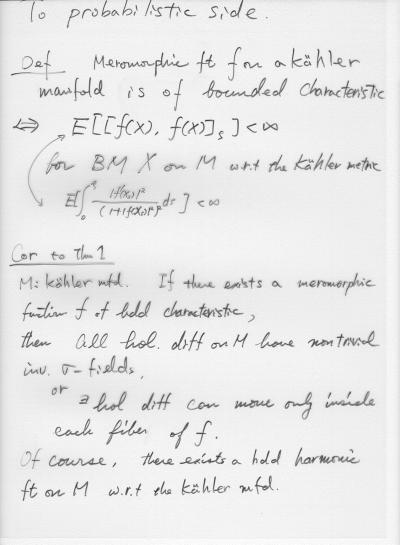 To probabilistic side.
Def Meromorphic ft f on a kähler
manifold is of bounded characteristic
⇔ E[[f(X), f(X)]_ζ] < ∞
for BM X on M w.r.t the Kähler metric
E[∫_0^ζ |f'(X_s)|²/(1+|f(X_s)|²)² ds] < ∞
Cor to Thm 1
M: kähler mfd. If there exists a meromorphic
function f of bdd characteristic,
then all hol. diff on M have nontrivial
inv. σ-fields,
or
∃ hol diff can move only inside
each fiber of f.
Of course, there exists a bdd harmonic
ft on M w.r.t the kähler mfd.